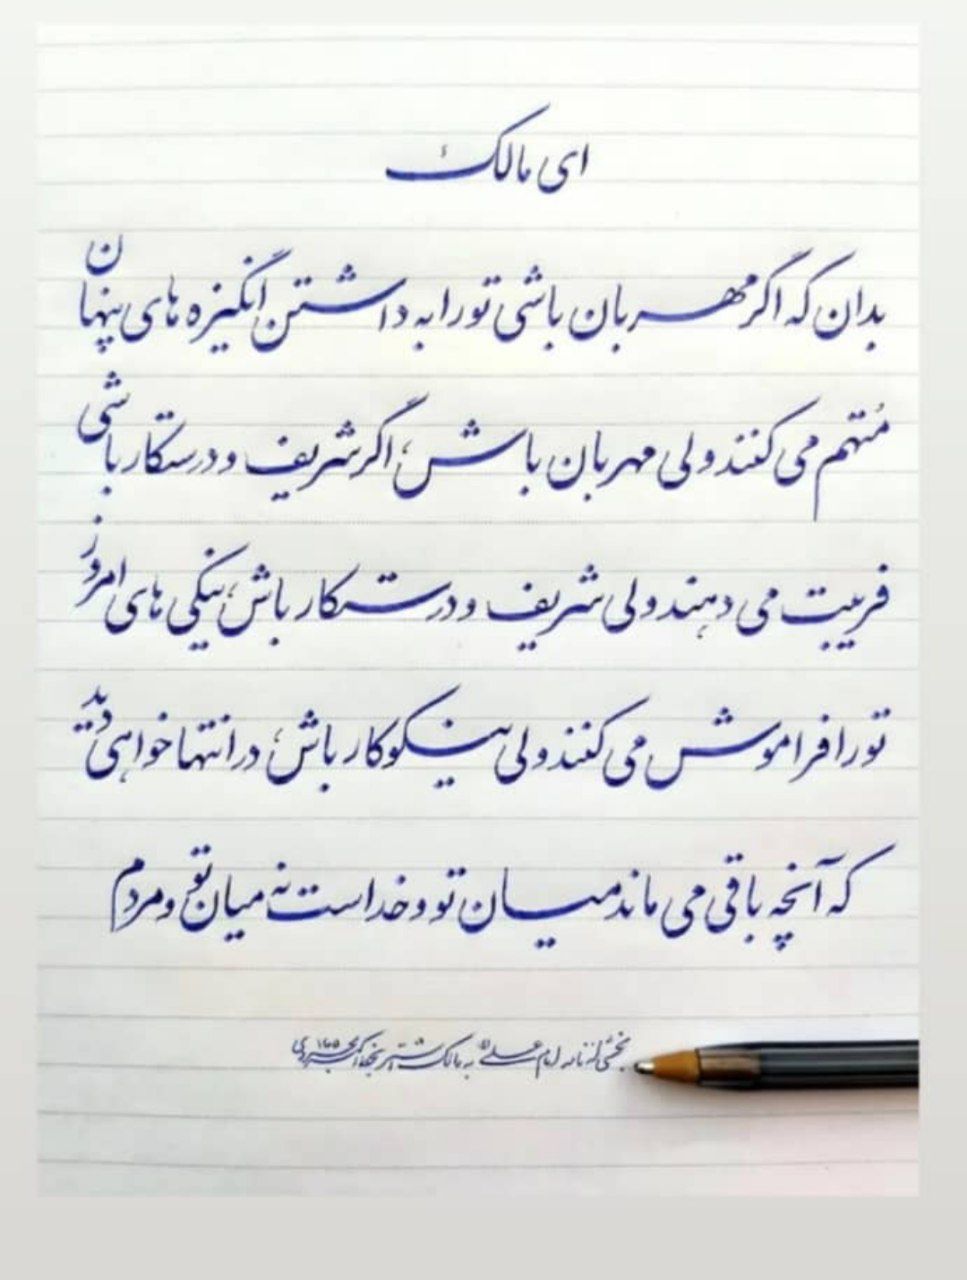 ای مالک
بدان که اگر مهربان باشی تو را به داشتن انگیزه های پنهان
متهم می کنند ولی مهربان باش، اگر شریف و درستکار باشی
فریبت می دهند ولی شریف و درستکار باش، نیکی های امروز
تو را فراموش می کنند ولی نیکوکار باش، در انتها خواهی دید
که آنچه باقی می ماند میان تو و خداست نه میان تو و مردم
بخشی از نامه امام علی به مالک اشتر